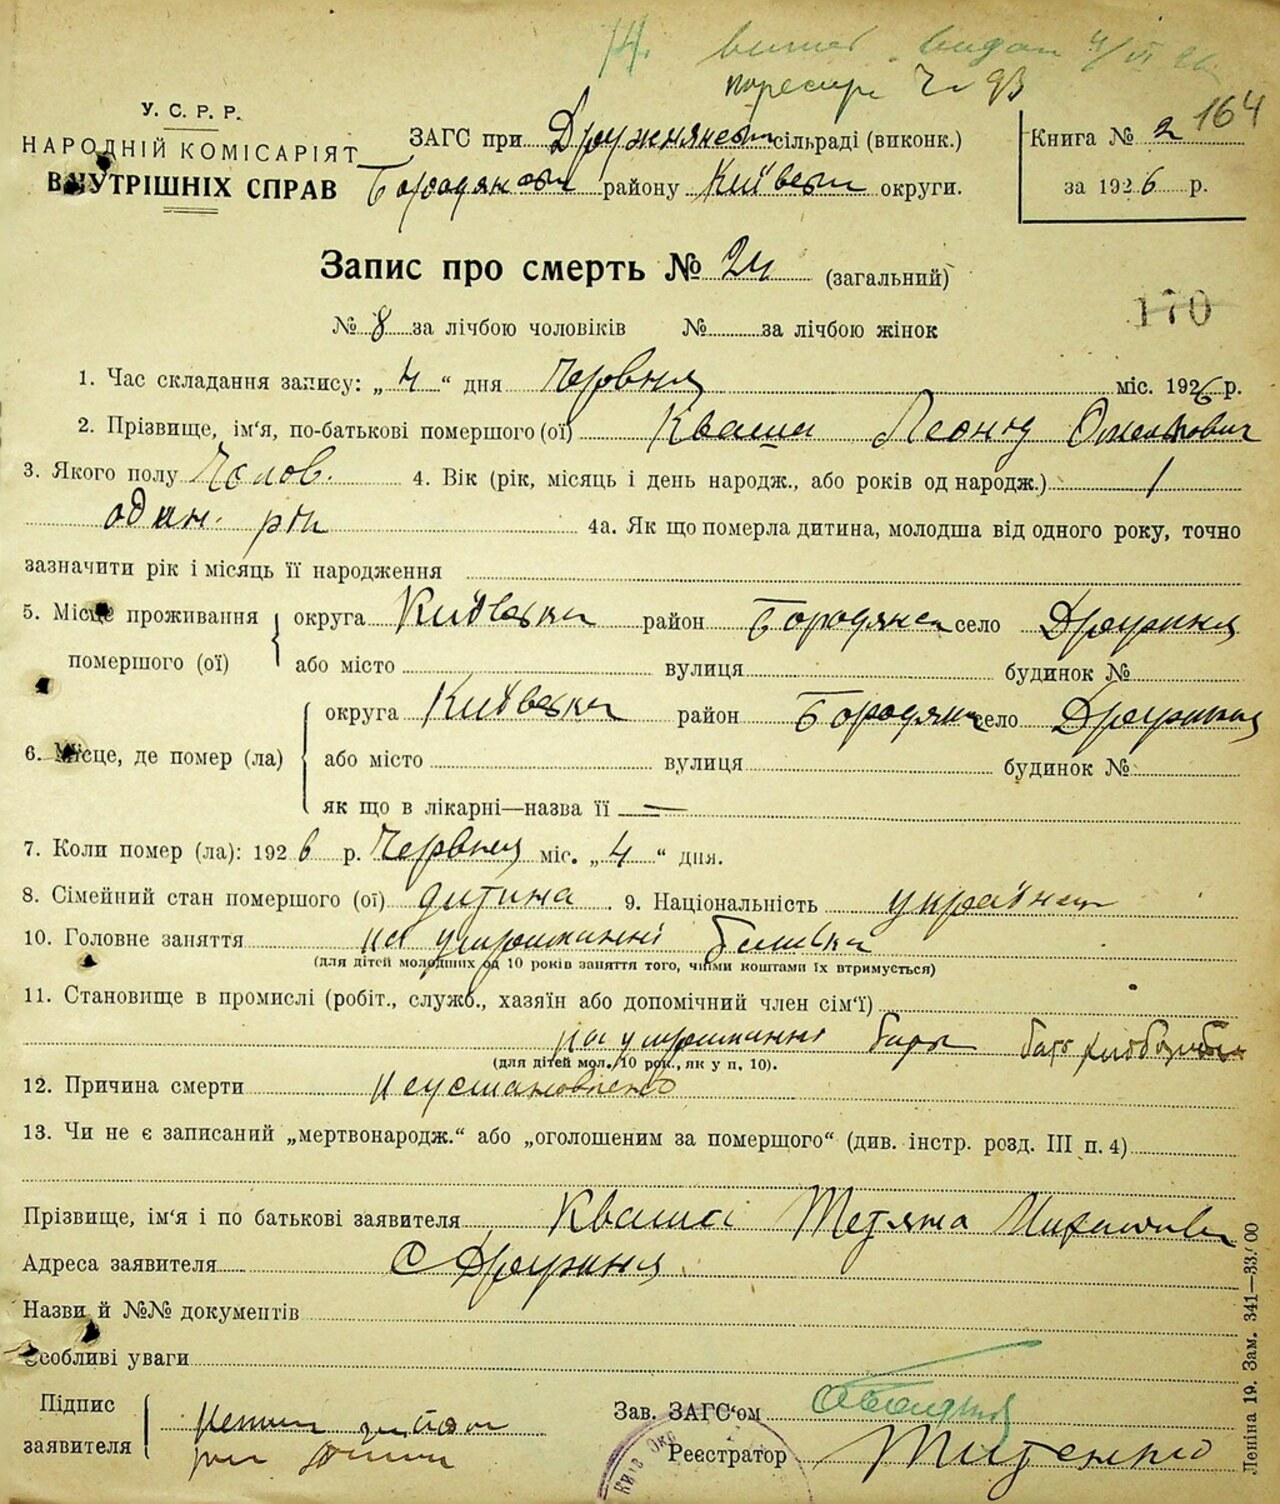 164
У. С. Р. Р.
НАРОДНІЙ КОМІСАРІЯТ
ВНУТРІШНІХ СПРАВ
ЗАГС при Дружнянськ сільраді (виконк.)
Бородянськ району Київськ округи.
Книга № 2
за 1926 р.
Запис про смерть № 24 (загальний)
170
№ 8 за лічбою чоловіків № за лічбою жінок
1. Час складання запису: „4“ дня Червня міс. 1926 р.
2. Прізвище, ім'я, по-батькові помершого (ої) Кваша Леонид
3. Якого полу Чолов. 4. Вік (рік, місяць і день народж., або років од народж.) 1
один рік 4а. Як що померла дитина, молодша від одного року, точно
зазначити рік і місяць її народження
5. Місце проживання помершого (ої) округа Київська район Бородянс село Дружня
або місто вулиця будинок №
6. Місце, де помер (ла) округа Київська район Бородянс село Дружня
або місто вулиця будинок №
як що в лікарні—назва її
7. Коли помер (ла): 1926 р. Червня міс. „4“ дня.
8. Сімейний стан помершого (ої) дитина 9. Національність українец
10. Головне заняття на утриманні батька
(для дітей молодших од 10 років заняття того, чиїми коштами їх втримується)
11. Становище в промислі (робіт., служб., хазяїн або допомічний член сім'ї)
на утриманні
(для дітей мол. 10 рок., як у п. 10).
12. Причина смерти неустановлено
13. Чи не є записаний „мертвонародж.“ або „оголошеним за помершого“ (див. інстр. розд. III п. 4)
Прізвище, ім'я і по батькові заявителя Кваша Тетяна
Адреса заявителя с Дружня
Назви й №№ документів
Особливі уваги
Підпис заявителя
Зав. ЗАГС'ом
Реєстратор Титенко
Київ Окр
Леніна 19. Зам. 341—33.